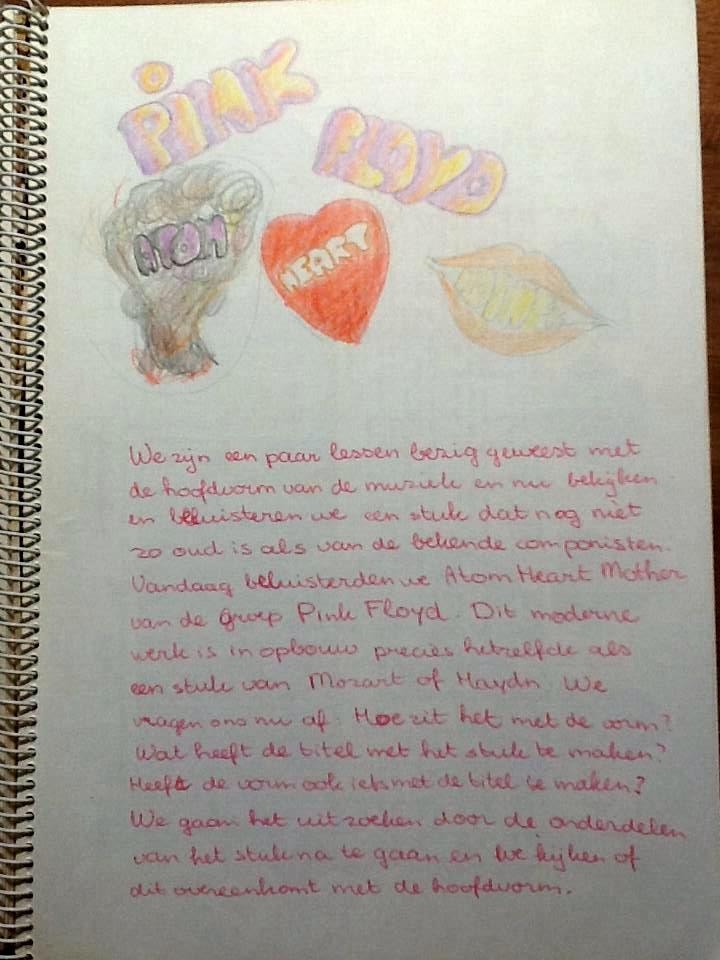 PINK
FLOYD
ATOM
HEART
We zijn een paar lessen bezig geweest met
de hoofdvorm van de muziek en nu bekijken
en beluisteren we een stuk dat nog niet
zo oud is als van de bekende componisten.
Vandaag beluisterden we Atom Heart Mother
van de groep Pink Floyd. Dit moderne
werk is in opbouw precies hetzelfde als
een stuk van Mozart of Haydn. We
vragen ons nu af: Hoe zit het met de vorm?
Wat heeft de titel met het stuk te maken?
Heeft de vorm ook iets met de titel te maken?
We gaan het uitzoeken door de onderdelen
van het stuk na te gaan en we kijken of
dit overeenkomt met de hoofdvorm.